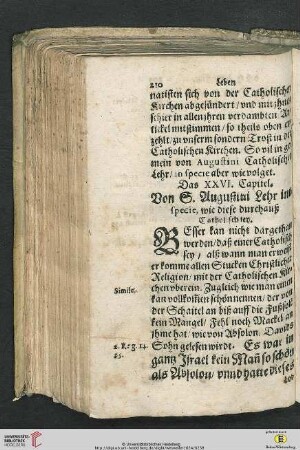 210 Leben
natisten sich von der Catholischen
Kirchen abgesündert / vnd mit jhnen
schier in allen jhren verdambten Ar-
tickel mitstimmen / so theils oben er-
zehlt / zu vnserm sondern Trost in der
Catholischen Kirchen. So vil in ge-
mein von Augustini Catholischer
Lehr / in specie aber wie volget.
Das XXVI. Capitel.
Von S. Augustini Lehr inn
specie, wie diese durchauß
Catholisch sey.
BEsser kan nicht dargethan
werden / daß einer Catholisch
sey / als wann man erweist
er komme allen Stucken Christlicher
Religion / mit der Catholischen Kir-
chen vberein. Zugleich wie man einen
Simile.
kan vollkosten schön nennen / der von
der Schaitel an biß auff die Fußsoll
kein Mangel / Fehl noch Mackel an
jhme hat / wie von Absolon / Davids
2. Reg. 14.
Sohn gelesen wirdt. Es war im
25.
gantz Israel kein Mañ so schön
als Absolon / vnnd hatte dieses